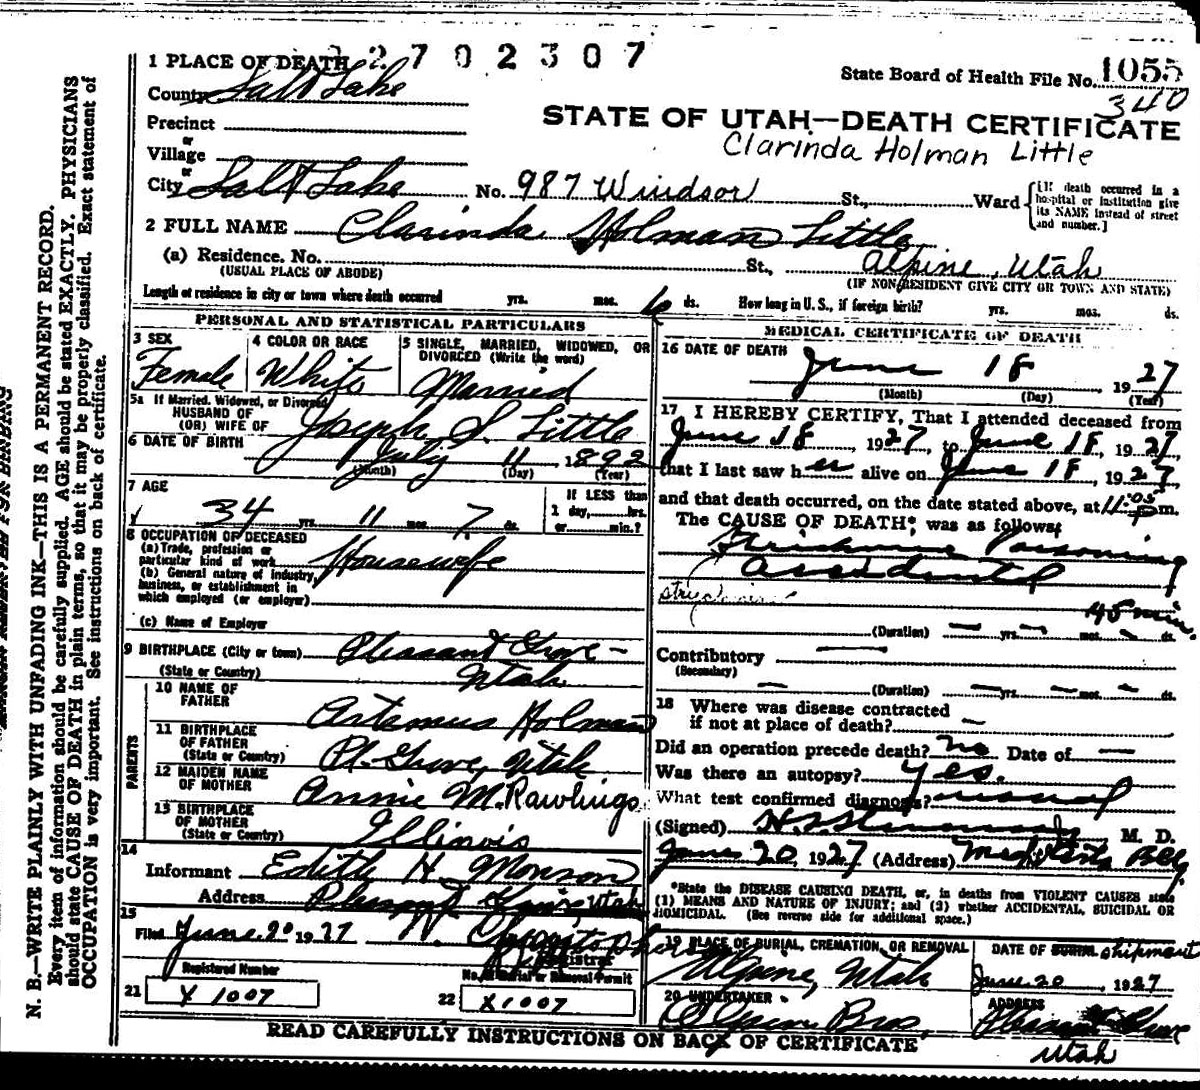 2702307
1 PLACE OF DEATH
State Board of Health File No. 1055
340
County Salt Lake
STATE OF UTAH—DEATH CERTIFICATE
Clarinda Holman Little
Precinct
or
Village
or
City Salt Lake No. 987 Windsor St., Ward
[If death occurred in a hospital or institution give its NAME instead of street and number.]
2 FULL NAME Clarinda Holman Little
(a) Residence. No. St., Alpine, Utah
(USUAL PLACE OF ABODE) (IF NON RESIDENT GIVE CITY OR TOWN AND STATE)
Length of residence in city or town where death occurred yrs. mos. 6 ds. How long in U. S., if foreign birth? yrs. mos. ds.
PERSONAL AND STATISTICAL PARTICULARS
3 SEX
Female
4 COLOR OR RACE
White
5 SINGLE, MARRIED, WIDOWED, OR
DIVORCED (Write the word)
Married
5a If Married, Widowed, or Divorced
HUSBAND OF
(OR) WIFE OF Joseph S. Little
6 DATE OF BIRTH July 11 1892
(Month) (Day) (Year)
7 AGE
34 yrs. 11 mos. 7 ds.
If LESS than
1 day, hrs.
or min.?
8 OCCUPATION OF DECEASED
(a) Trade, profession or
particular kind of work Housewife
(b) General nature of industry,
business, or establishment in
which employed (or employer)
(c) Name of Employer
9 BIRTHPLACE (City or town) Pleasant Grove -
(State or Country) Utah
PARENTS
10 NAME OF
FATHER Artemus Holman
11 BIRTHPLACE
OF FATHER
(State or Country) Pl. Grove, Utah
12 MAIDEN NAME
OF MOTHER Annie M. Rawlings
13 BIRTHPLACE
OF MOTHER
(State or Country) Illinois
14
Informant Edith H. Monson
Address Pleasant Grove, Utah
15
Filed June 20 1927
Registrar
Registered Number
No. of Burial or Removal Permit
21 X 1007
22 X 1007
MEDICAL CERTIFICATE OF DEATH
16 DATE OF DEATH
June 18, 1927
(Month) (Day) (Year)
17 I HEREBY CERTIFY, That I attended deceased from
June 18 1927, to June 18, 1927
that I last saw her alive on June 18, 1927
and that death occurred, on the date stated above, at 11:05 p m.
The CAUSE OF DEATH* was as follows:
Poisoning
accidental
45 min.
(Duration) — yrs. — mos. — ds.
Contributory —
(Secondary)
— (Duration) — yrs. — mos. — ds.
18 Where was disease contracted
if not at place of death? —
Did an operation precede death? no Date of —
Was there an autopsy? yes.
What test confirmed diagnosis?
(Signed) M. D.
June 20, 1927 (Address)
*State the DISEASE CAUSING DEATH, or, in deaths from VIOLENT CAUSES state
(1) MEANS AND NATURE OF INJURY; and (2) whether ACCIDENTAL, SUICIDAL OR
HOMICIDAL. (See reverse side for additional space.)
19 PLACE OF BURIAL, CREMATION, OR REMOVAL
Alpine, Utah
DATE OF BURIAL shipment
June 20, 1927
20 UNDERTAKER
Bros.
ADDRESS
Pleasant Grove
Utah
READ CAREFULLY INSTRUCTIONS ON BACK OF CERTIFICATE
N. B.—WRITE PLAINLY WITH UNFADING INK—THIS IS A PERMANENT RECORD.
Every item of information should be carefully supplied. AGE should be stated EXACTLY. PHYSICIANS
should state CAUSE OF DEATH in plain terms, so that it may be properly classified. Exact statement of
OCCUPATION is very important. See instructions on back of certificate.